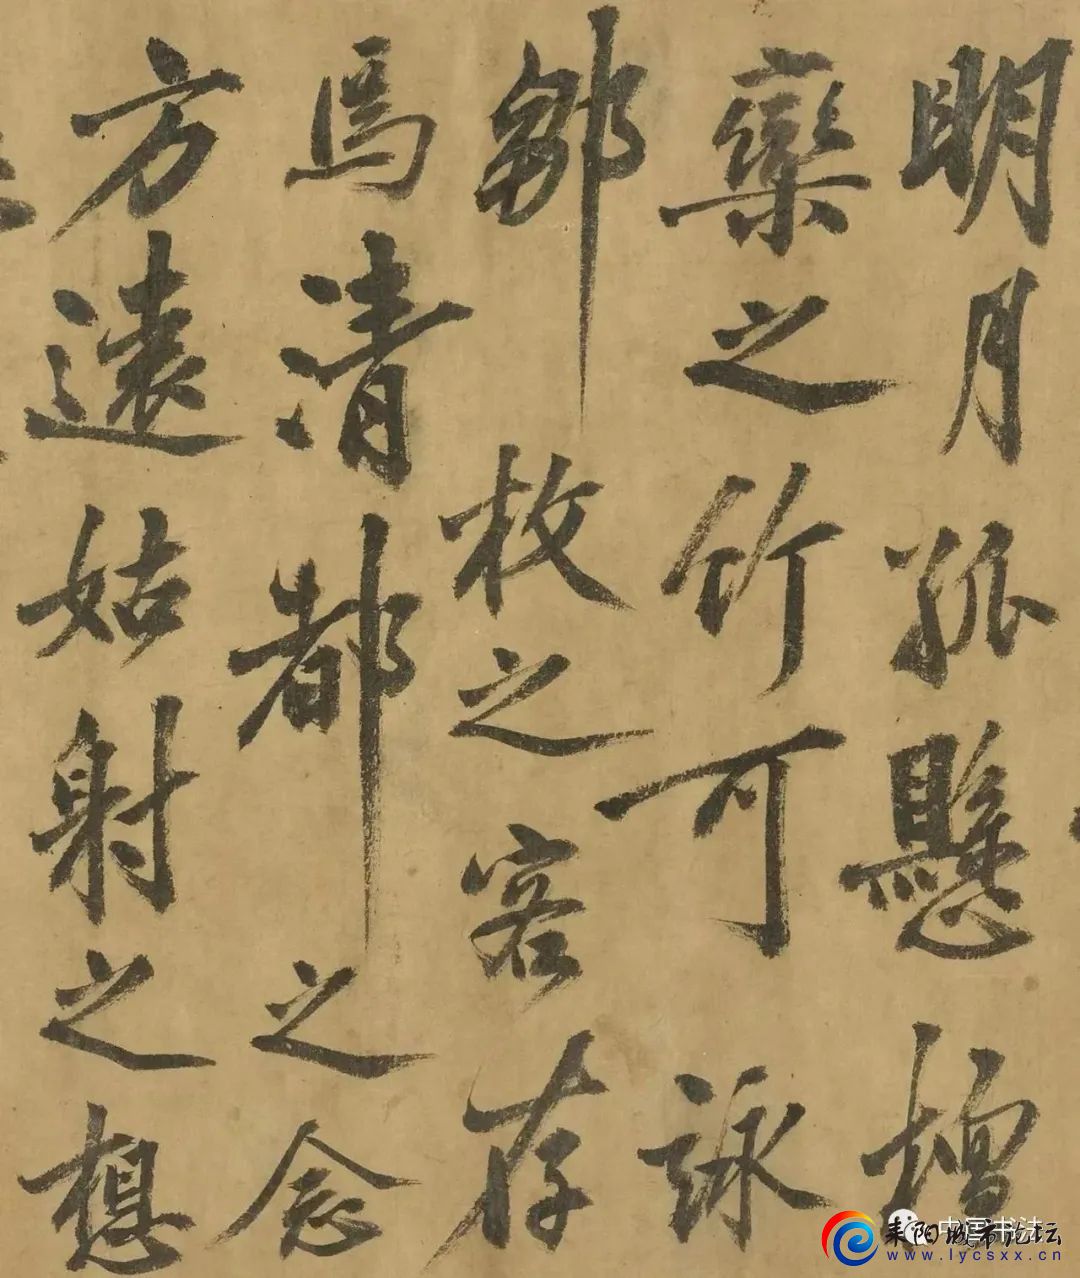 明月孤懸檀
欒之竹可詠
鄒枚之客存
焉清都之念
方遠姑射之想
中国书法
耒阳城市论坛
www.lycsxx.cn